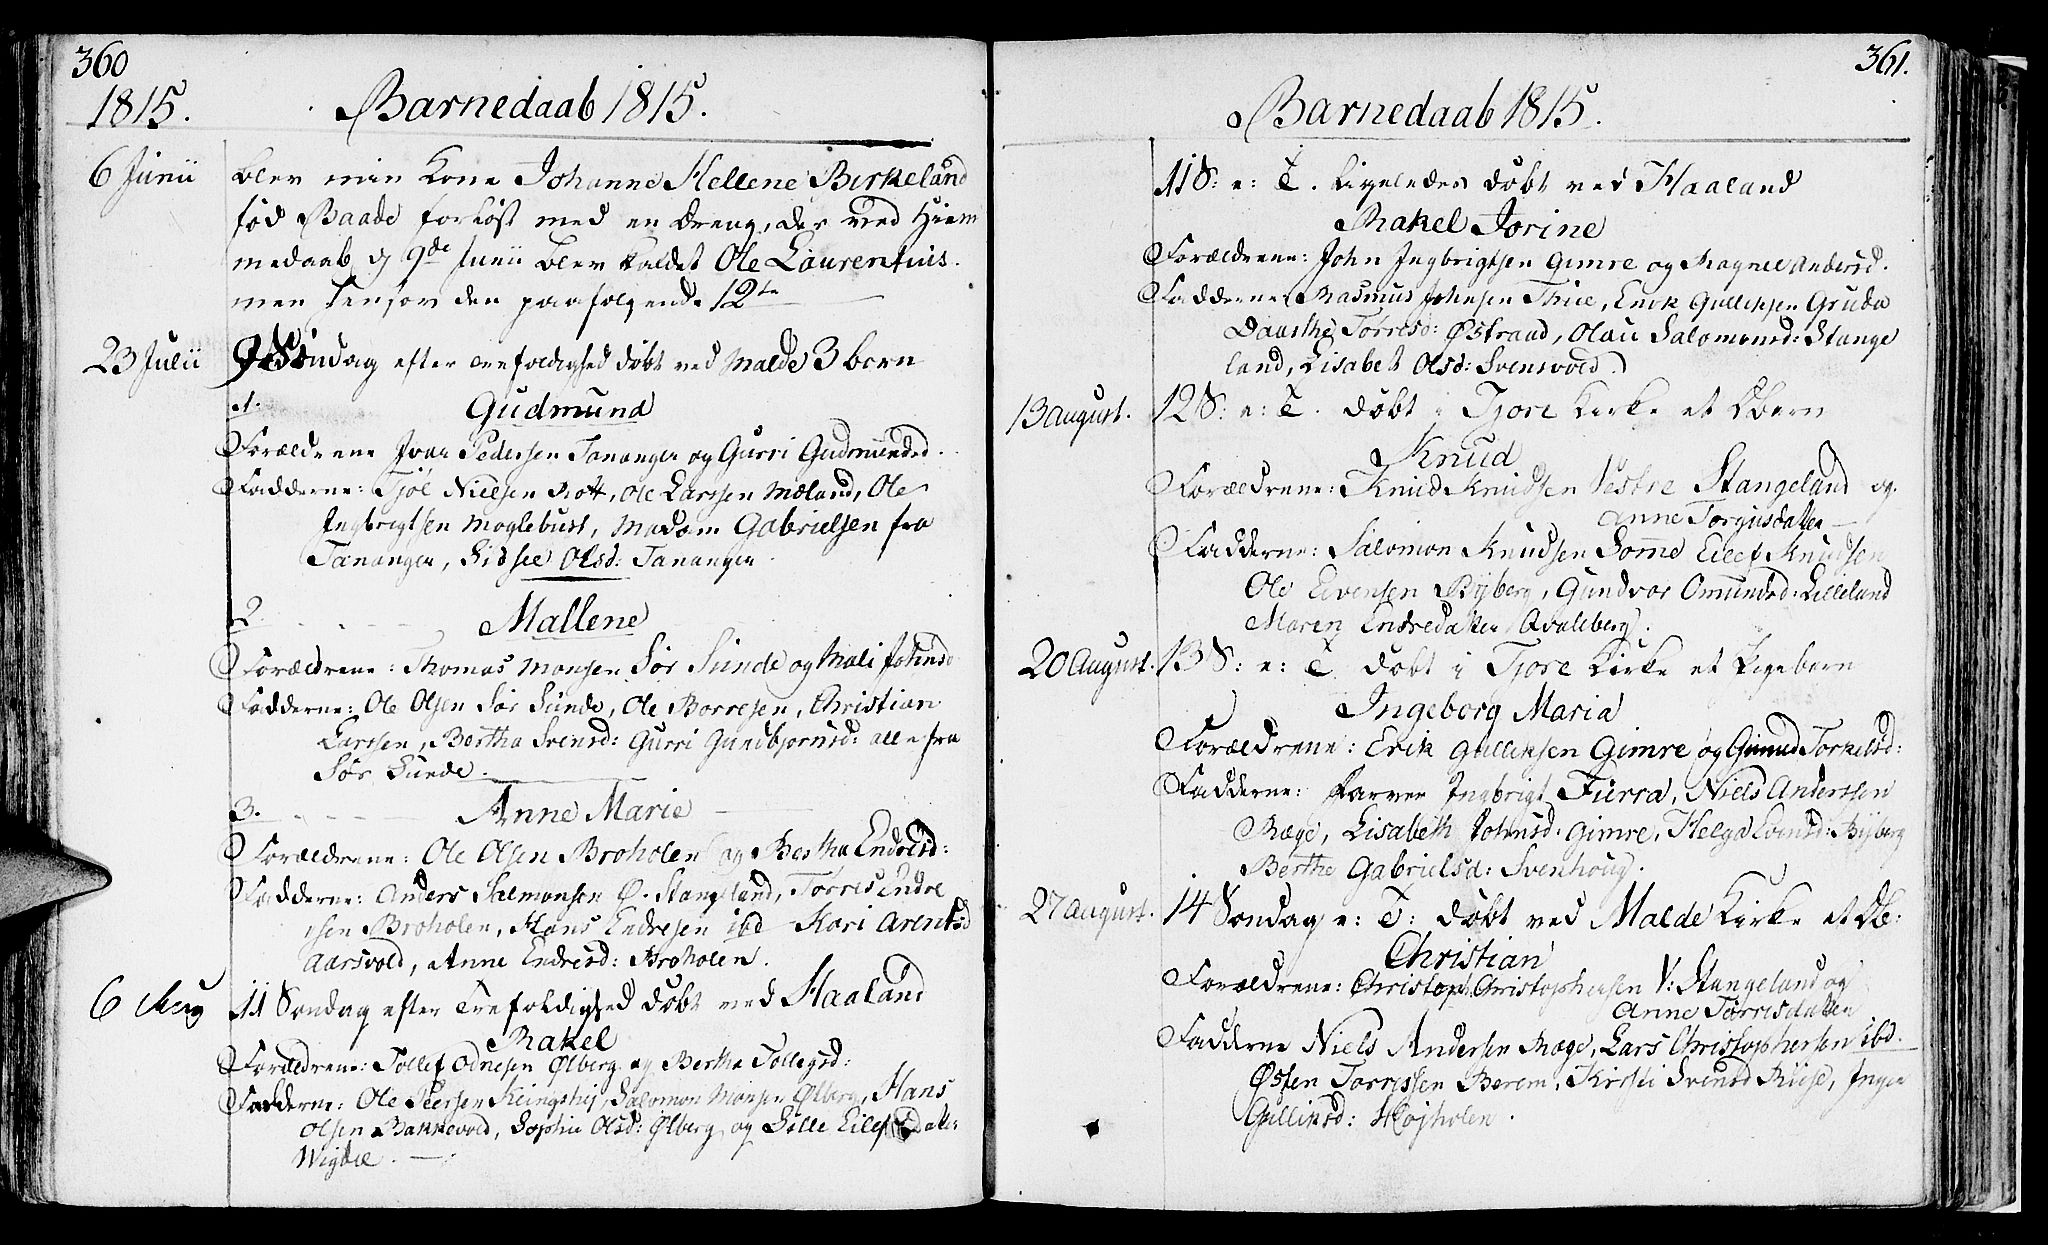 360
1815. Barnedaab 1815.
6 Junii blev min Kone Johanne Hellene Birkeland
fød Baade forløst med en Dreng, der ved Hiem
medaab d 9de Junii blev kaldet Ole Laurentius.
men den paafølgende 12te
23 Julii 9 Søndag efter Trefoldighed døbt ved Malde 3 børn
1. Gudmund
Forældrene Ivar Pedersen Tananger og Gurri Gudmundsd.
Fadderne: Tjøl Nielsen Rott, Ole Larssen Meland, Ole
Ingbrigtsen Moglebust, Madam Gabrielsen fra
Tananger, Sidsel Olsd: Tananger
2. Mallene
Forældrene: Thomas Monsen Sør Sunde og Mali Johnsd
Fadderne: Ole Olsen Sør Sunde, Ole Borresen, Christian
Larssen, Bertha Svensd: Gurri Gundbjornsd: alle fra
Sør Sunde.
3. Anne Marie
Forældrene: Ole Olsen Broholen og Bertha Endresd:
Fadderne: Anders Salmonsen Ø. Stangeland, Torres Endre
sen Broholen, Hans Endresen ibd Kari Arentsd
Aarsvold, Anne Endresd: Broholen.
6 Aug 11 Søndag efter Trefoldighed døbt ved Haaland
Rakel
Forældrene: Tollef Odnesen Ølberg og Bertha Tollegsd:
Fadderne: Ole Peersen Salomon Monsen Ølberg, Hans
Olsen Bakkevold, Sophie Olsd: Ølberg og Sille Eilefsdatter
Wigdel.
361.
Barnedaab 1815.
11 S: e: T. Ligeledes døbt ved Haaland
Rakel Jorine
Forældrene: John Ingbrigtsen Gimre og Magnel Andersd.
Fadderne Rasmus Johnsen Thiel, Erik Gulliksen Gruda
Daarthe Torresd: Østraad, Olau Salomonsd: Stange
land, Lisabet Olsd: Svensvold.
13 august. 12 S: e: T. døbt i Tjore Kirke et Dbarn
Knud
Forældrene: Knud Knudsen Vestre Stangeland og
Anne Torgiusdatter
Fadderne: Salomon Knudsen Somme Eilef Knudsen
Ole Eivensen Byberg, Gundvor Omundsd: Lilleland
Maren Endredatter Qvaleberg.
20 August. 13 S: e: T døbt i Tjore Kirke et Pigebarn
Ingeborg Maria
Forældrene: Erik Gulliksen Gimre og Gunild Torkelsd:
Fadderne: Farver Ingbrigt Fierra, Niels Anderssen
Ræge, Lisabeth Johnsd: Gimre, Helga Evensd: Byberg
Berthe Gabrielsd: Svenhoug.
27 august. 14 Søndag e: T: døbt ved Malde Kirke et Db:
Christian
Forældrene: Christoph: Christophersen V: Stangeland og
Anne Torrisdatter
Fadderne Niels Andersen Ræge, Lars Christophersen ibd.
Østen Torressen Berem, Kirsti Svensd Riise, Inger
Gulliksd: Højholen.